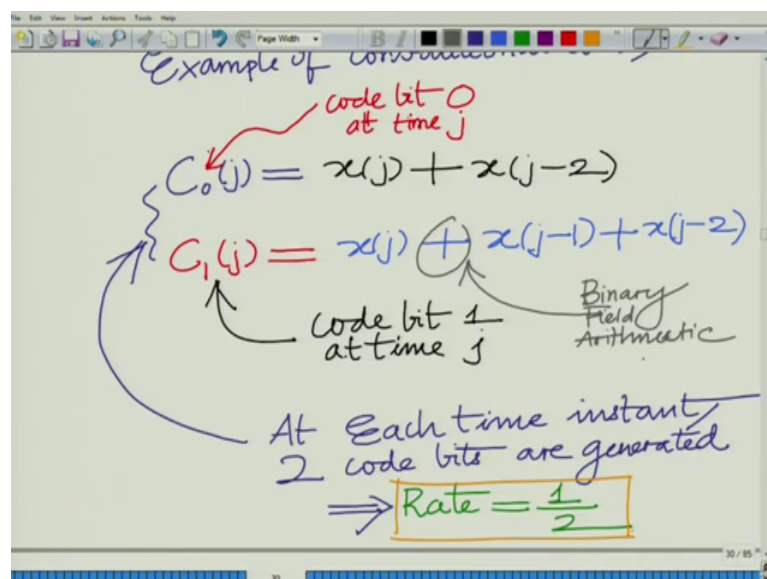 File Edit View Insert Actions Tools Help
Page Width
B I
Example of
code bit 0
at time j
C₀(j) = x(j) + x(j-2)
C₁(j) = x(j) + x(j-1) + x(j-2)
Binary
Field
Arithmetic
code bit 1
at time j
At Each time instant
2 code bits are generated
⟹ Rate = 1/2
30 / 85
30